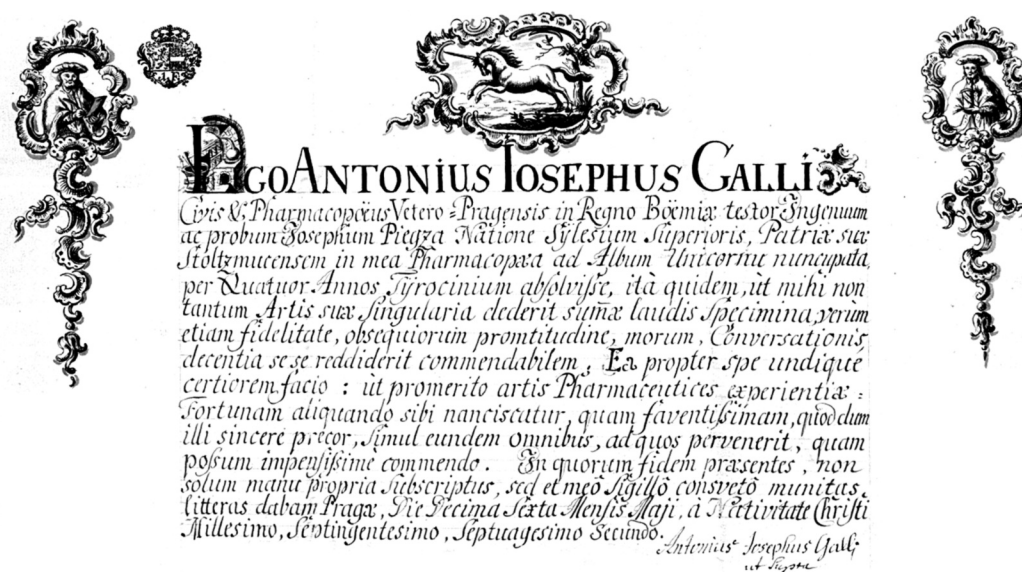 EGO ANTONIUS IOSEPHUS GALLI
Civis &, Pharmacopœus Vetero=Pragensis in Regno Böemiæ testor Ingenuum
ac probum Josephum Piegza Natione Sylesium Superioris, Patriæ suæ
Stoltzmucensem in mea Pharmacopæa ad Album Unicornu nuncupata,
per Quatuor Annos Tyrocinium absolvisse, ità quidem, ùt mihi non
tantum Artis suæ Singularia dederit sum̄æ laudis Specimina, verum
etiam fidelitate, obsequiorum promtitudine, morum, Conversationis
decentia se se reddiderit commendabilem, Ea propter spe undiquè
certiorem facio : ùt promerito artis Pharmaceutices experientiæ =
Fortunam aliquando sibi nanciscatur, quam faventissimam, quod dum
illi sincerè precor, Simul eundem omnibus, ad quos pervenerit, quam
possum impensissimè commendo. In quorum fidem præsentes, non
solum manu propria Subscriptus, sed et meô Sigillô consvetô munitas
litteras dabam Pragæ, Die Decima Sexta Mensis Maji, à Nativitate Christi
Millesimo, Septingentesimo, Septuagesimo Secundo.
Antonius Josephus Galli
ut Supra